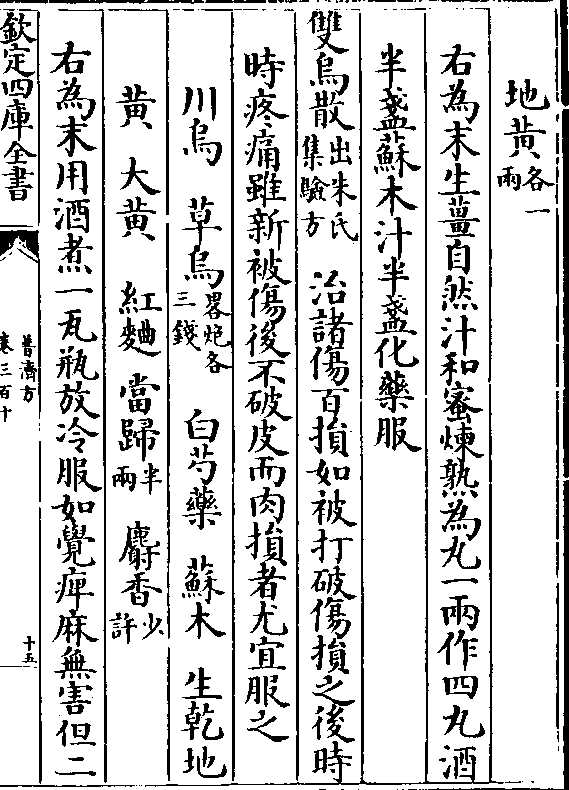 地黄各一兩
右為末生薑自然汁和蜜煉熟為丸一兩作四丸酒
半盞蘇木汁半盞化藥服
雙烏散出朱氏集驗方 治諸傷百損如被打破傷損之後時
時疼痛雖新被傷後不破皮而肉損者尤宜服之
川烏 草烏畧炮各三錢 白芍藥 蘇木 生乾地
黄 大黄 紅麯 當歸半兩 麝香少許
右為末用酒煮一瓦瓶放冷服如覺痺麻無害但二
欽定四庫全書
普濟方
卷三百十
十五